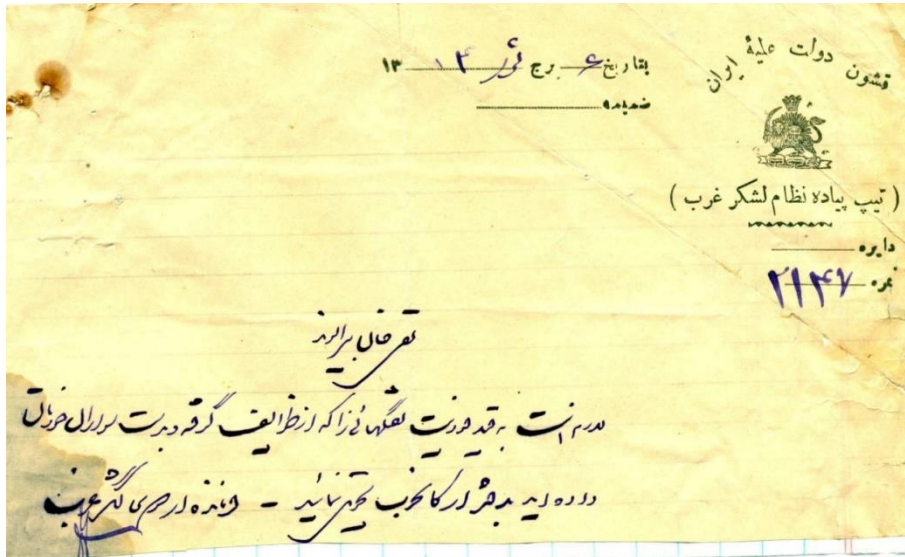 قشون دولت علیۀ ایران
( تیپ پیاده نظام لشکر غرب )
دایره
نمره ۲۱۴۷
بتاریخ ۶ برج ثور ۱۳۰۴
ضمیمه
تقی خان
لازم است به قید فوریت تفنگهائی را که از طوایف گرفته و بدست سواران خودتان
داده اید به تحویل نمائید - فرمانده اردوی لشکر غرب